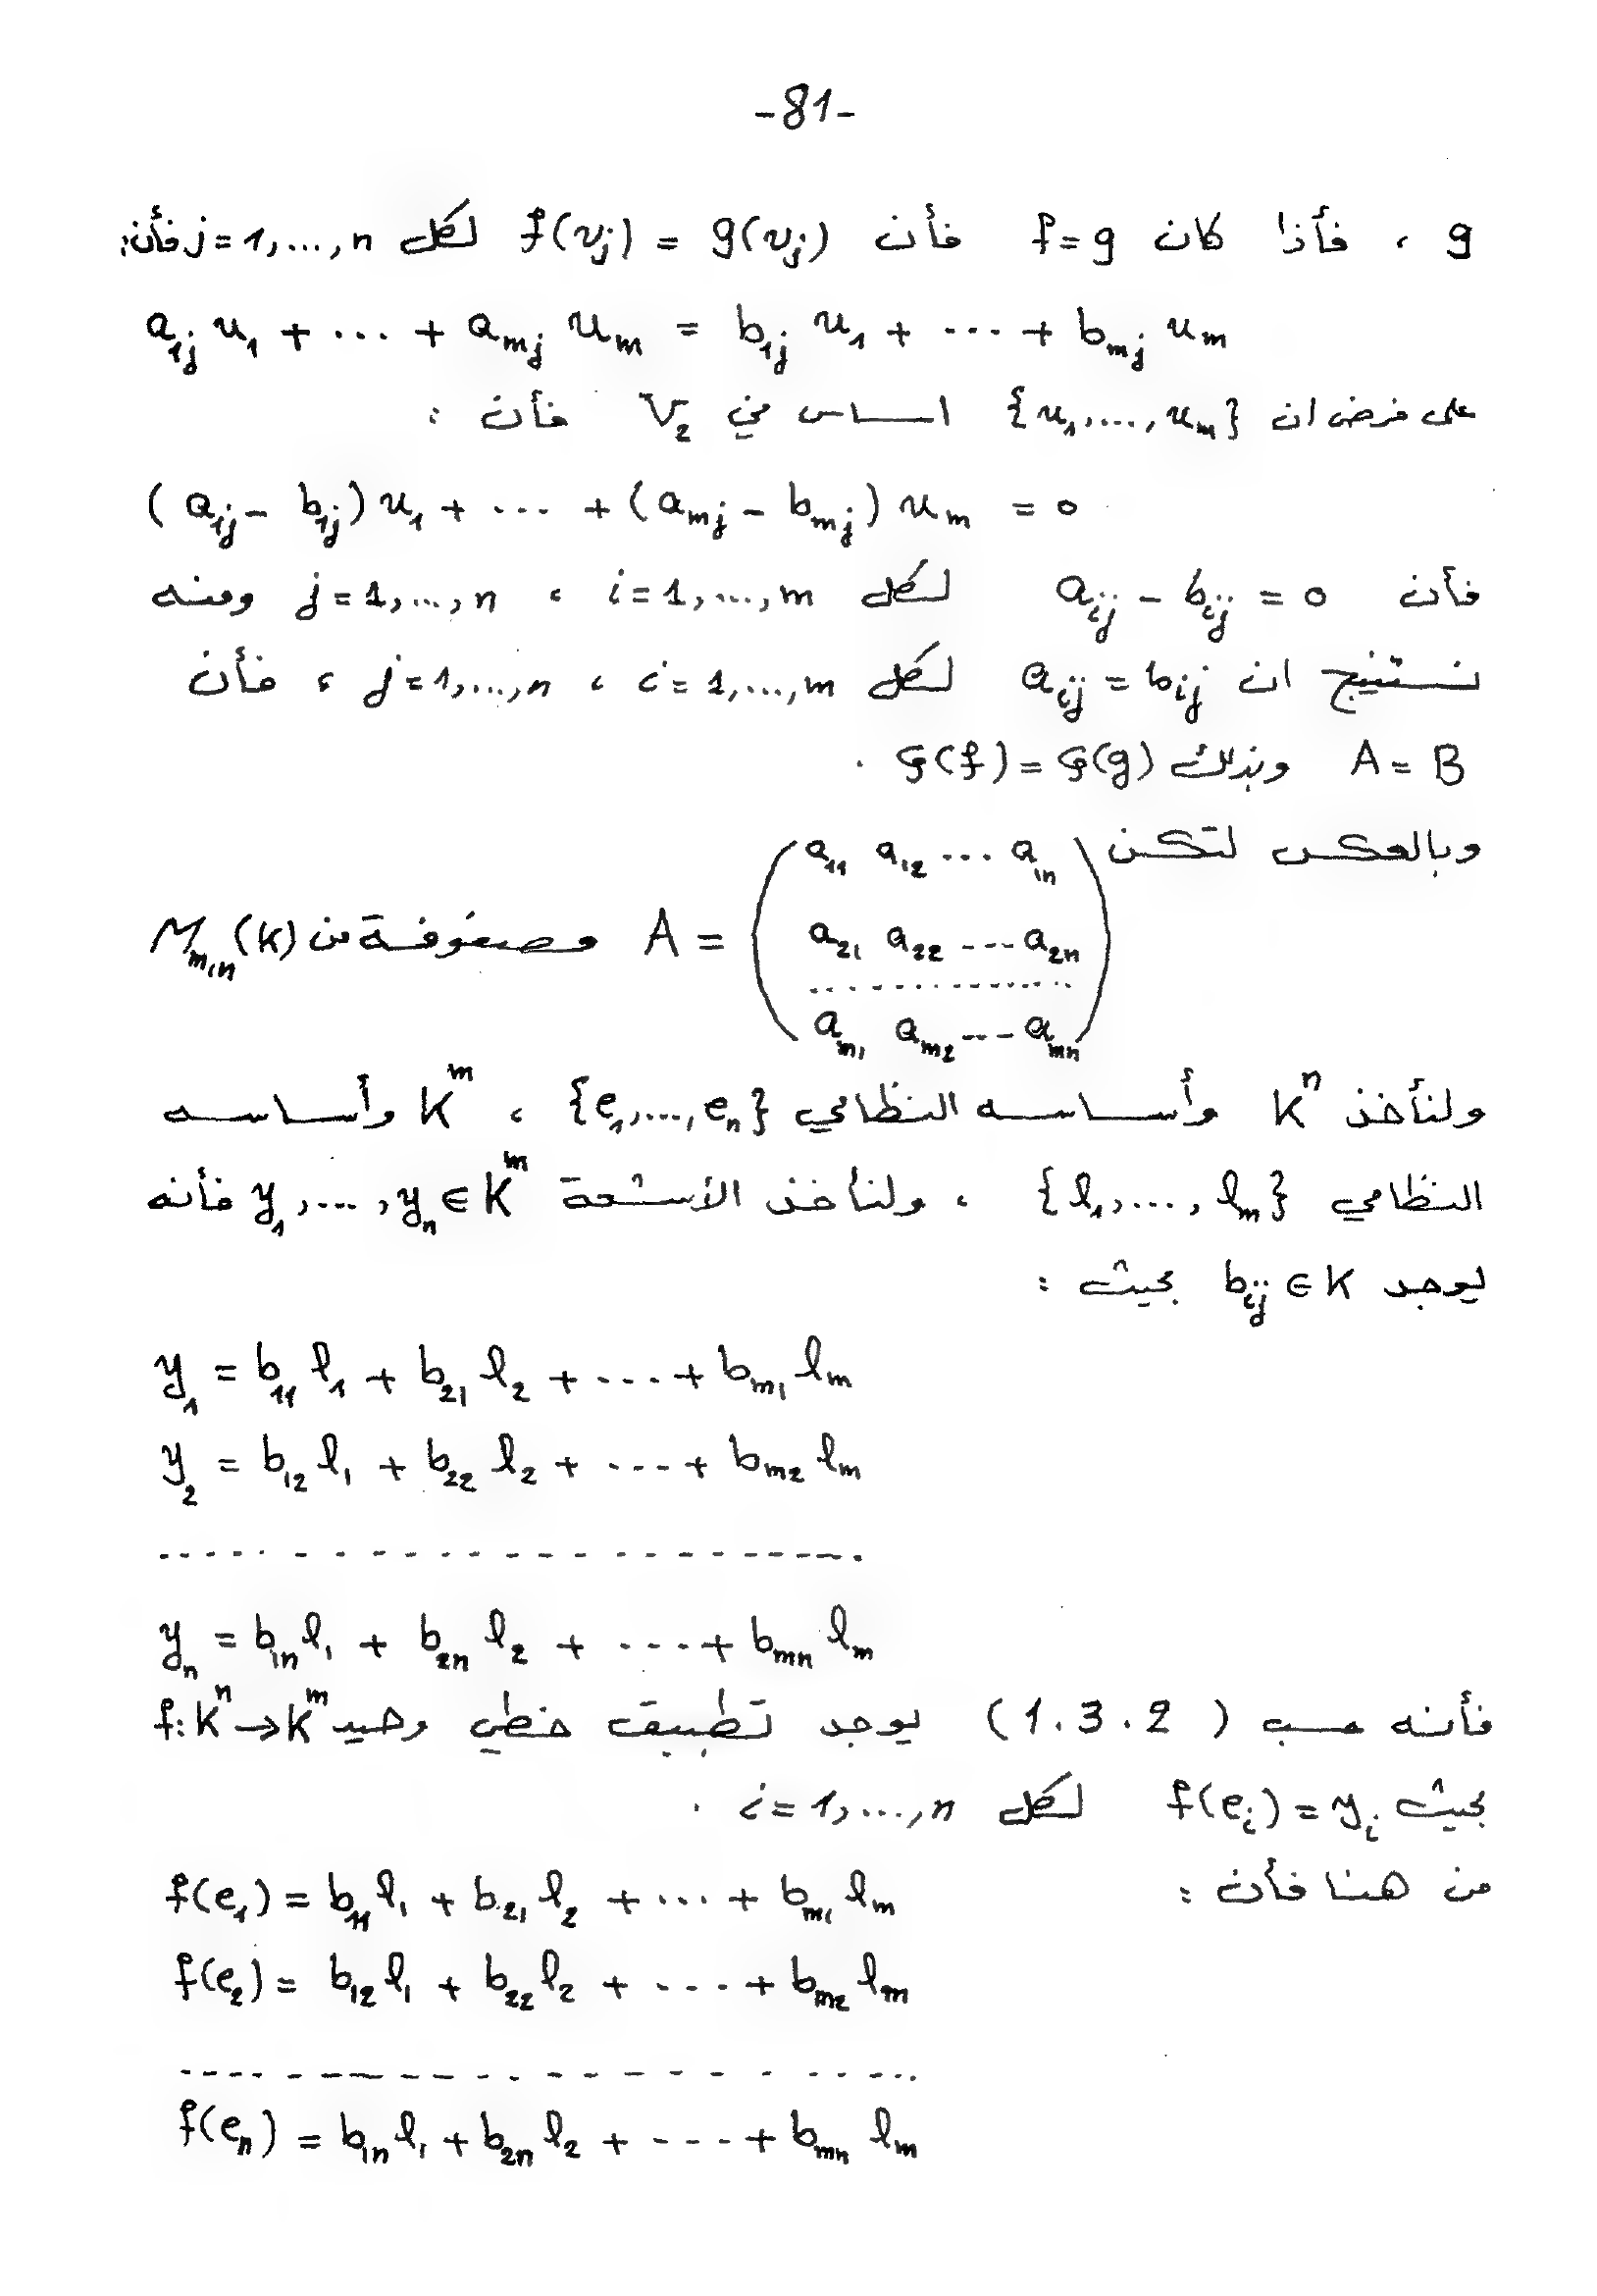 -81-
g ، فأذا كان f=g فأن f(vj) = g(vj) لكل j=1,...,n فأن:
a1j u1 + ... + amj um = b1j u1 + ... + bmj um
على فرض ان {u1,...,um} اساس في V2 فأن :
(a1j - b1j)u1 + ... + (amj - bmj) um = 0
فأن aij - bij = 0 لكل i=1,...,m ، j=1,...,n ومنه
نستنتج ان aij = bij لكل i=1,...,m ، j=1,...,n ، فأن
A = B وبذلك φ(f) = φ(g) .
وبالعكس لتكن
a11 a12 ... a1n
A = a21 a22 ... a2n مصفوفة من Mm,n(K)
.................
am1 am2 ... amn
ولنأخذ K^n وأساسه النظامي {e1,...,en} ، K^m وأساسه
النظامي {l1,...,lm} ، ولنأخذ الأشعة y1,...,yn ∈ K^m فأنه
يوجد bij ∈ K بحيث :
y1 = b11 l1 + b21 l2 + ... + bm1 lm
y2 = b12 l1 + b22 l2 + ... + bm2 lm
.................
yn = b1n l1 + b2n l2 + ... + bmn lm
فأنه حسب (1.3.2) يوجد تطبيق خطي وحيد f: K^n → K^m
بحيث f(ei) = yi لكل i=1,...,n .
من هنا فأن :
f(e1) = b11 l1 + b21 l2 + ... + bm1 lm
f(e2) = b12 l1 + b22 l2 + ... + bm2 lm
.................
f(en) = b1n l1 + b2n l2 + ... + bmn lm